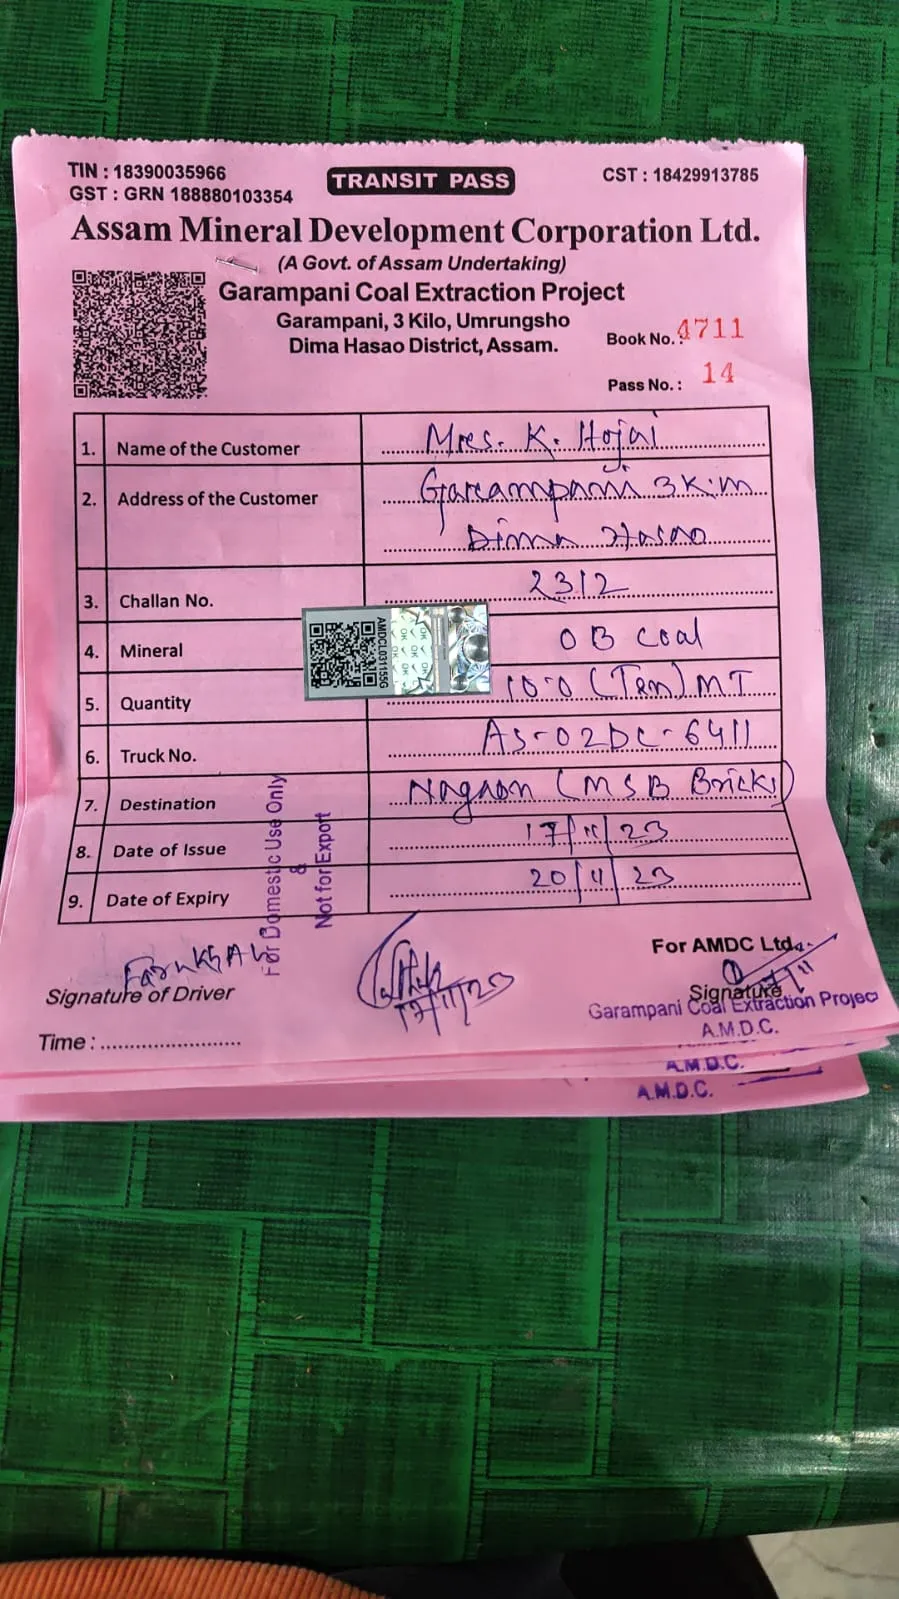 TIN : 18390035966
GST : GRN 188880103354
TRANSIT PASS
CST : 18429913785
Assam Mineral Development Corporation Ltd.
(A Govt. of Assam Undertaking)
Garampani Coal Extraction Project
Garampani, 3 Kilo, Umrungsho
Dima Hasao District, Assam.
Book No. : 4711
Pass No. : 14
1. Name of the Customer Mrs. K. Hojai
2. Address of the Customer Garampani 3 K.m
Dima Hasao
3. Challan No. 2312
4. Mineral OB Coal
AMDCL031155G
5. Quantity 10.0 (Ten) MT
6. Truck No. AS-02DC-6411
7. Destination Nagaon (MSB Bricks)
8. Date of Issue 17/11/23
9. Date of Expiry 20/11/23
For Domestic Use Only
&
Not for Export
For AMDC Ltd.
Signature of Driver
17/11/23
Signature
Garampani Coal Extraction Project
A.M.D.C.
Time : ........................
A.M.D.C.
A.M.D.C.